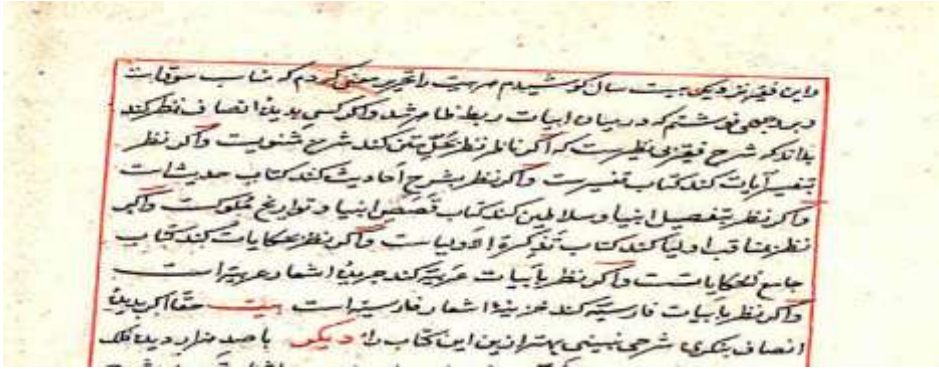 واین فقیر نیز قریب بیست سال کوشیدم هر بیت را تحریر معنی کردم که مناسب سوقاست
وبر وجهی نوشتم که درمیان ابیات ربط ظاهر شد واگر کسی بدیدهٔ انصاف نظر کند
بداند که شرح فقیر بی نظیرست که اگر ناظر نظر بحلّ متن کند شرح مثنویست واگر نظر
بتفسیر آیات کند کتاب تفسیرست واگر نظر بشرح أحادیث کند کتاب حدیث است
واگر نظر بتفصیل انبیا وسلاطین کند کتاب قصص انبیا وتواریخ ملوکست واگر
نظر بمناقب اولیا کند کتاب تذکرة الأولیاست واگر نظر بحکایات کند کتاب
جامع الحکایاتست واگر نظر بابیات عربیّه کند جریدهٔ اشعار عربیّه است
واگر نظر بابیات فارسیّه کند خزینهٔ اشعار فارسیّه است بیت حقّا اگر بدیدهٔ
انصاف بنگری شرحی نبینی بهتر ازین این کتاب را دیگر با صد هزار دیده فلک